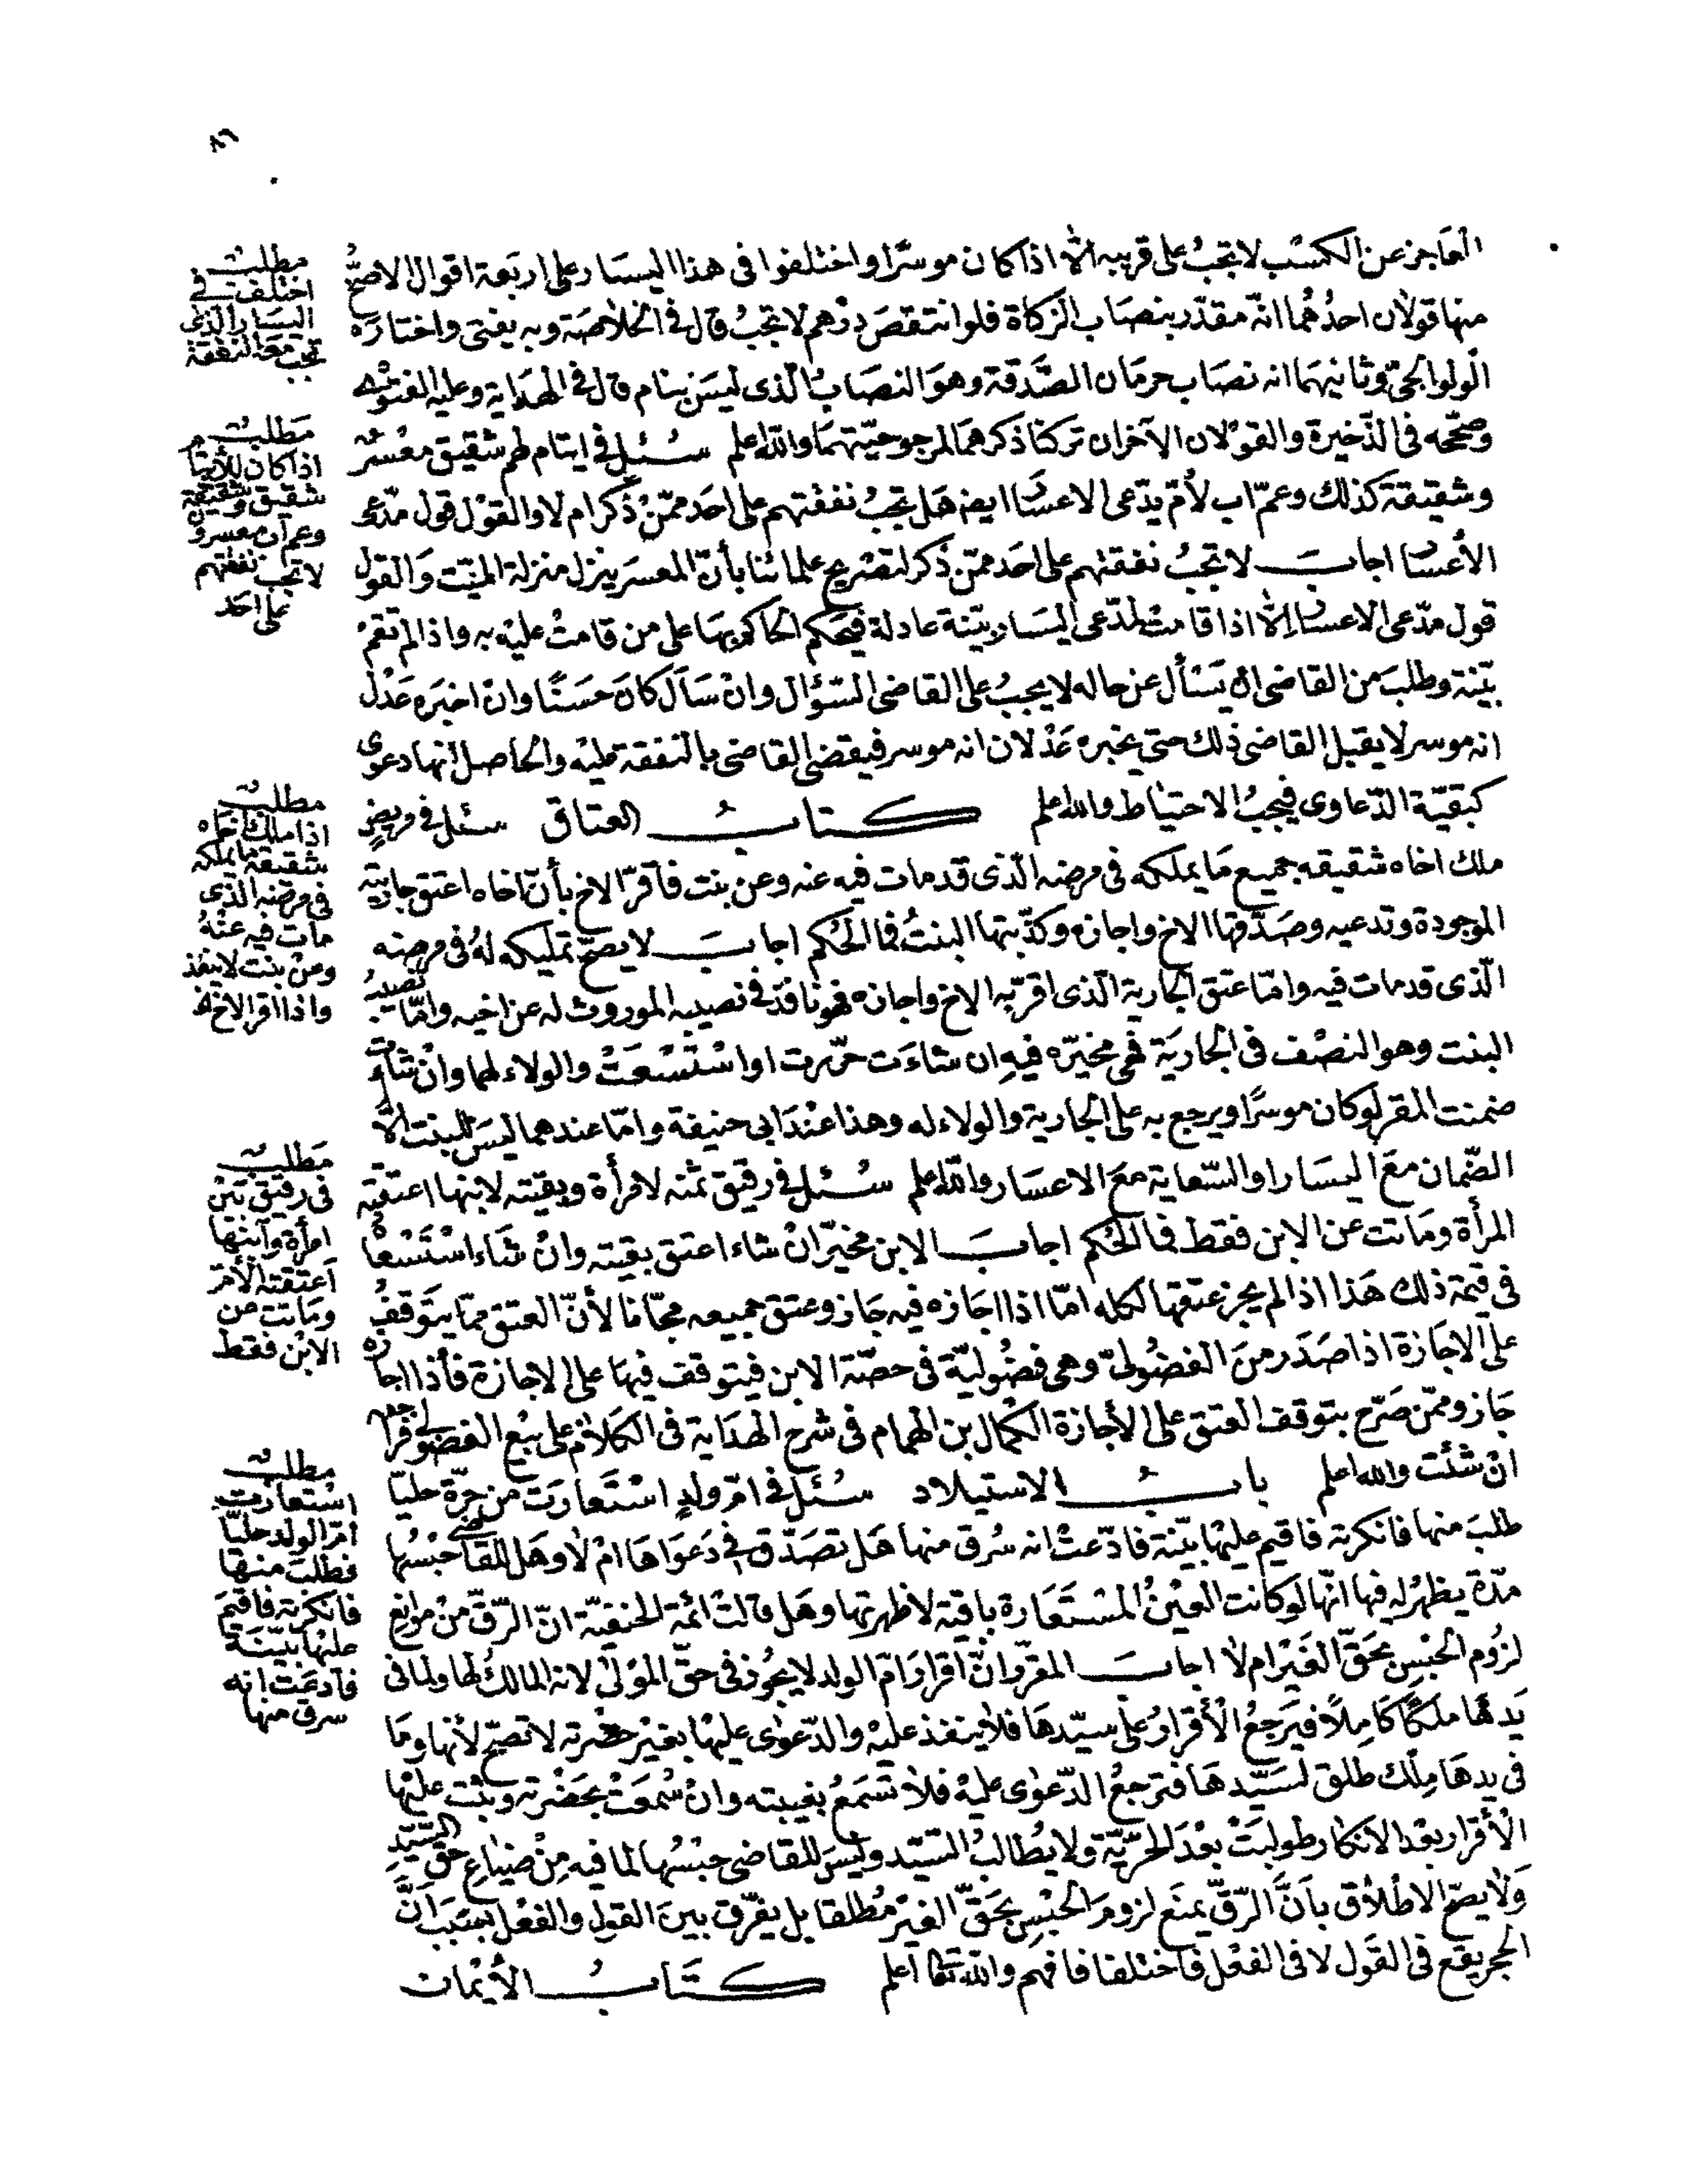 العاجز عن الكسب لا تجب على قريبه الا اذا كان موسرا واختلفوا فى هذا اليسار على اربعة اقوال الاصح
منها قولان احدهما انه مقدر بنصاب الزكاة فلو انتقص درهم لا تجب قال فى الخلاصة وبه يفتى واختاره
الولوالجى وثانيهما انه نصاب حرمان الصدقة وهو النصاب الذى ليس بنام قال فى الهداية وعليه الفتوى
وصححه فى الذخيرة والقولان الآخران تركنا ذكرهما لمرجوحيتهما والله اعلم سئل فى ايتام لهم شقيق معسر
وشقيقة كذلك وعم اب لأم يدعى الاعسار ايضا هل تجب نفقتهم على احد ممن ذكر ام لا والقول قول مدعى
الأعسار اجاب لا تجب نفقتهم على احد ممن ذكر لتصريح علمائنا بأن المعسر ينزل منزلة الميت والقول
قول مدعى الاعسار الا اذا قامت لمدعى اليسار بينة عادلة فيحكم الحاكم بها على من قامت عليه به واذا لم تقم
بينة وطلب من القاضى ان يسأل عن حاله لا يجب على القاضى السؤال وان سأل كان حسنا وان اخبره عدل
انه موسر لا يقبل القاضى ذلك حتى يخبره عدلان انه موسر فيقضى القاضى بالنفقة عليه والحاصل انها دعوى
كبقية الدعاوى فيجب الاحتياط والله اعلم كتاب العتاق سئل فى مريض
ملك اخاه شقيقه جميع ما يملكه فى مرضه الذى قد مات فيه عنه وعن بنت فأقر الاخ بأن اخاه اعتق جاريته
الموجودة وتدعيه وصدقها الاخ واجازه وكذبتها البنت فما الحكم اجاب لا يصح تمليكه له فى مرضه
الذى قد مات فيه واما عتق الجارية الذى اقر به الاخ واجازه فهو نافذ فى نصيبه الموروث له عن اخيه واما نصيب
البنت وهو النصف فى الجارية فهى مخيرة فيه ان شاءت حررت او استسعت والولاء لهما وان شاءت
ضمنت المقر لو كان موسرا ويرجع به على الجارية والولاء له وهذا عند ابى حنيفة واما عندهما ليس للبنت الا
الضمان مع اليسار او السعاية مع الاعسار والله اعلم سئل فى رقيق ثمنه لامرأة وبقيته لابنها اعتقته
المرأة وماتت عن الابن فقط فما الحكم اجاب الابن مخير ان شاء اعتق بقيته وان شاء استسعاه
فى قيمة ذلك هذا اذا لم يجز عتقها لكله اما اذا اجازه فيه جاز وعتق جميعه مجانا لأن العتق مما يتوقف
على الاجازة اذا صدر من الفضولى وهى فضولية فى حصة الابن فيتوقف فيها على الاجازة فأذا اجازه
جاز وممن صرح بتوقف العتق على الأجازة الكمال بن الهمام فى شرح الهداية فى الكلام على بيع الفضولى فراجعه
ان شئت والله اعلم باب الاستيلاد سئل فى ام ولد استعارت من حرة حليا
طلب منها فانكرته فاقيم عليها بينة فادعت انه سرق منها هل تصدق فى دعواها ام لا وهل للقاضى حبسها
مدة يظهر له فيها انها لو كانت العين المستعارة باقية لاظهرتها وهل قالت ائمة الحنفية ان الرق من موانع
لزوم الحبس بحق الغير ام لا اجاب المقرر ان اقرار ام الولد لا يجوز فى حق المولى لانه المالك لها ولما فى
يدها ملكا كاملا فيرجع الأقرار على سيدها فلا ينفذ عليه والدعوى عليها بغير حضرته لا تصح لأنها وما
فى يدها ملك طلق لسيدها فترجع الدعوى عليه فلا تسمع بغيبته وان سمعت بحضرته وثبت عليها
الأقرار بعد الانكار طولبت بعد الحرية ولا يطالب السيد وليس للقاضى حبسها لما فيه من ضياع حق السيد
ولا يصح الاطلاق بأن الرق يمنع لزوم الحبس بحق الغير مطلقا بل يفرق بين القول والفعل بسبب ان
الحجر يقع فى القول لا فى الفعل فاختلفا فافهم والله تعالى اعلم كتاب الأيمان
مطلب
اختلف فى
اليسار الذى
تجب معه النفقة
مطلب
اذا كان للأيتام
شقيق وشقيقة
وعم آن معسرون
لا تجب نفقتهم
على احد
مطلب
اذا ملك اخاه
شقيقه ما يملكه
فى مرضه الذى
مات فيه عنه
وعن بنت لا ينفذ
واذا اقر الاخ الخ
مطلب
فى رقيق بين
امرأة وابنها
اعتقته الأم
وماتت عن
الابن فقط
مطلب
استعارت
ام الولد حليا
فطلب منها
فانكرته فاقيم
عليها بينة
فادعت انه
سرق منها